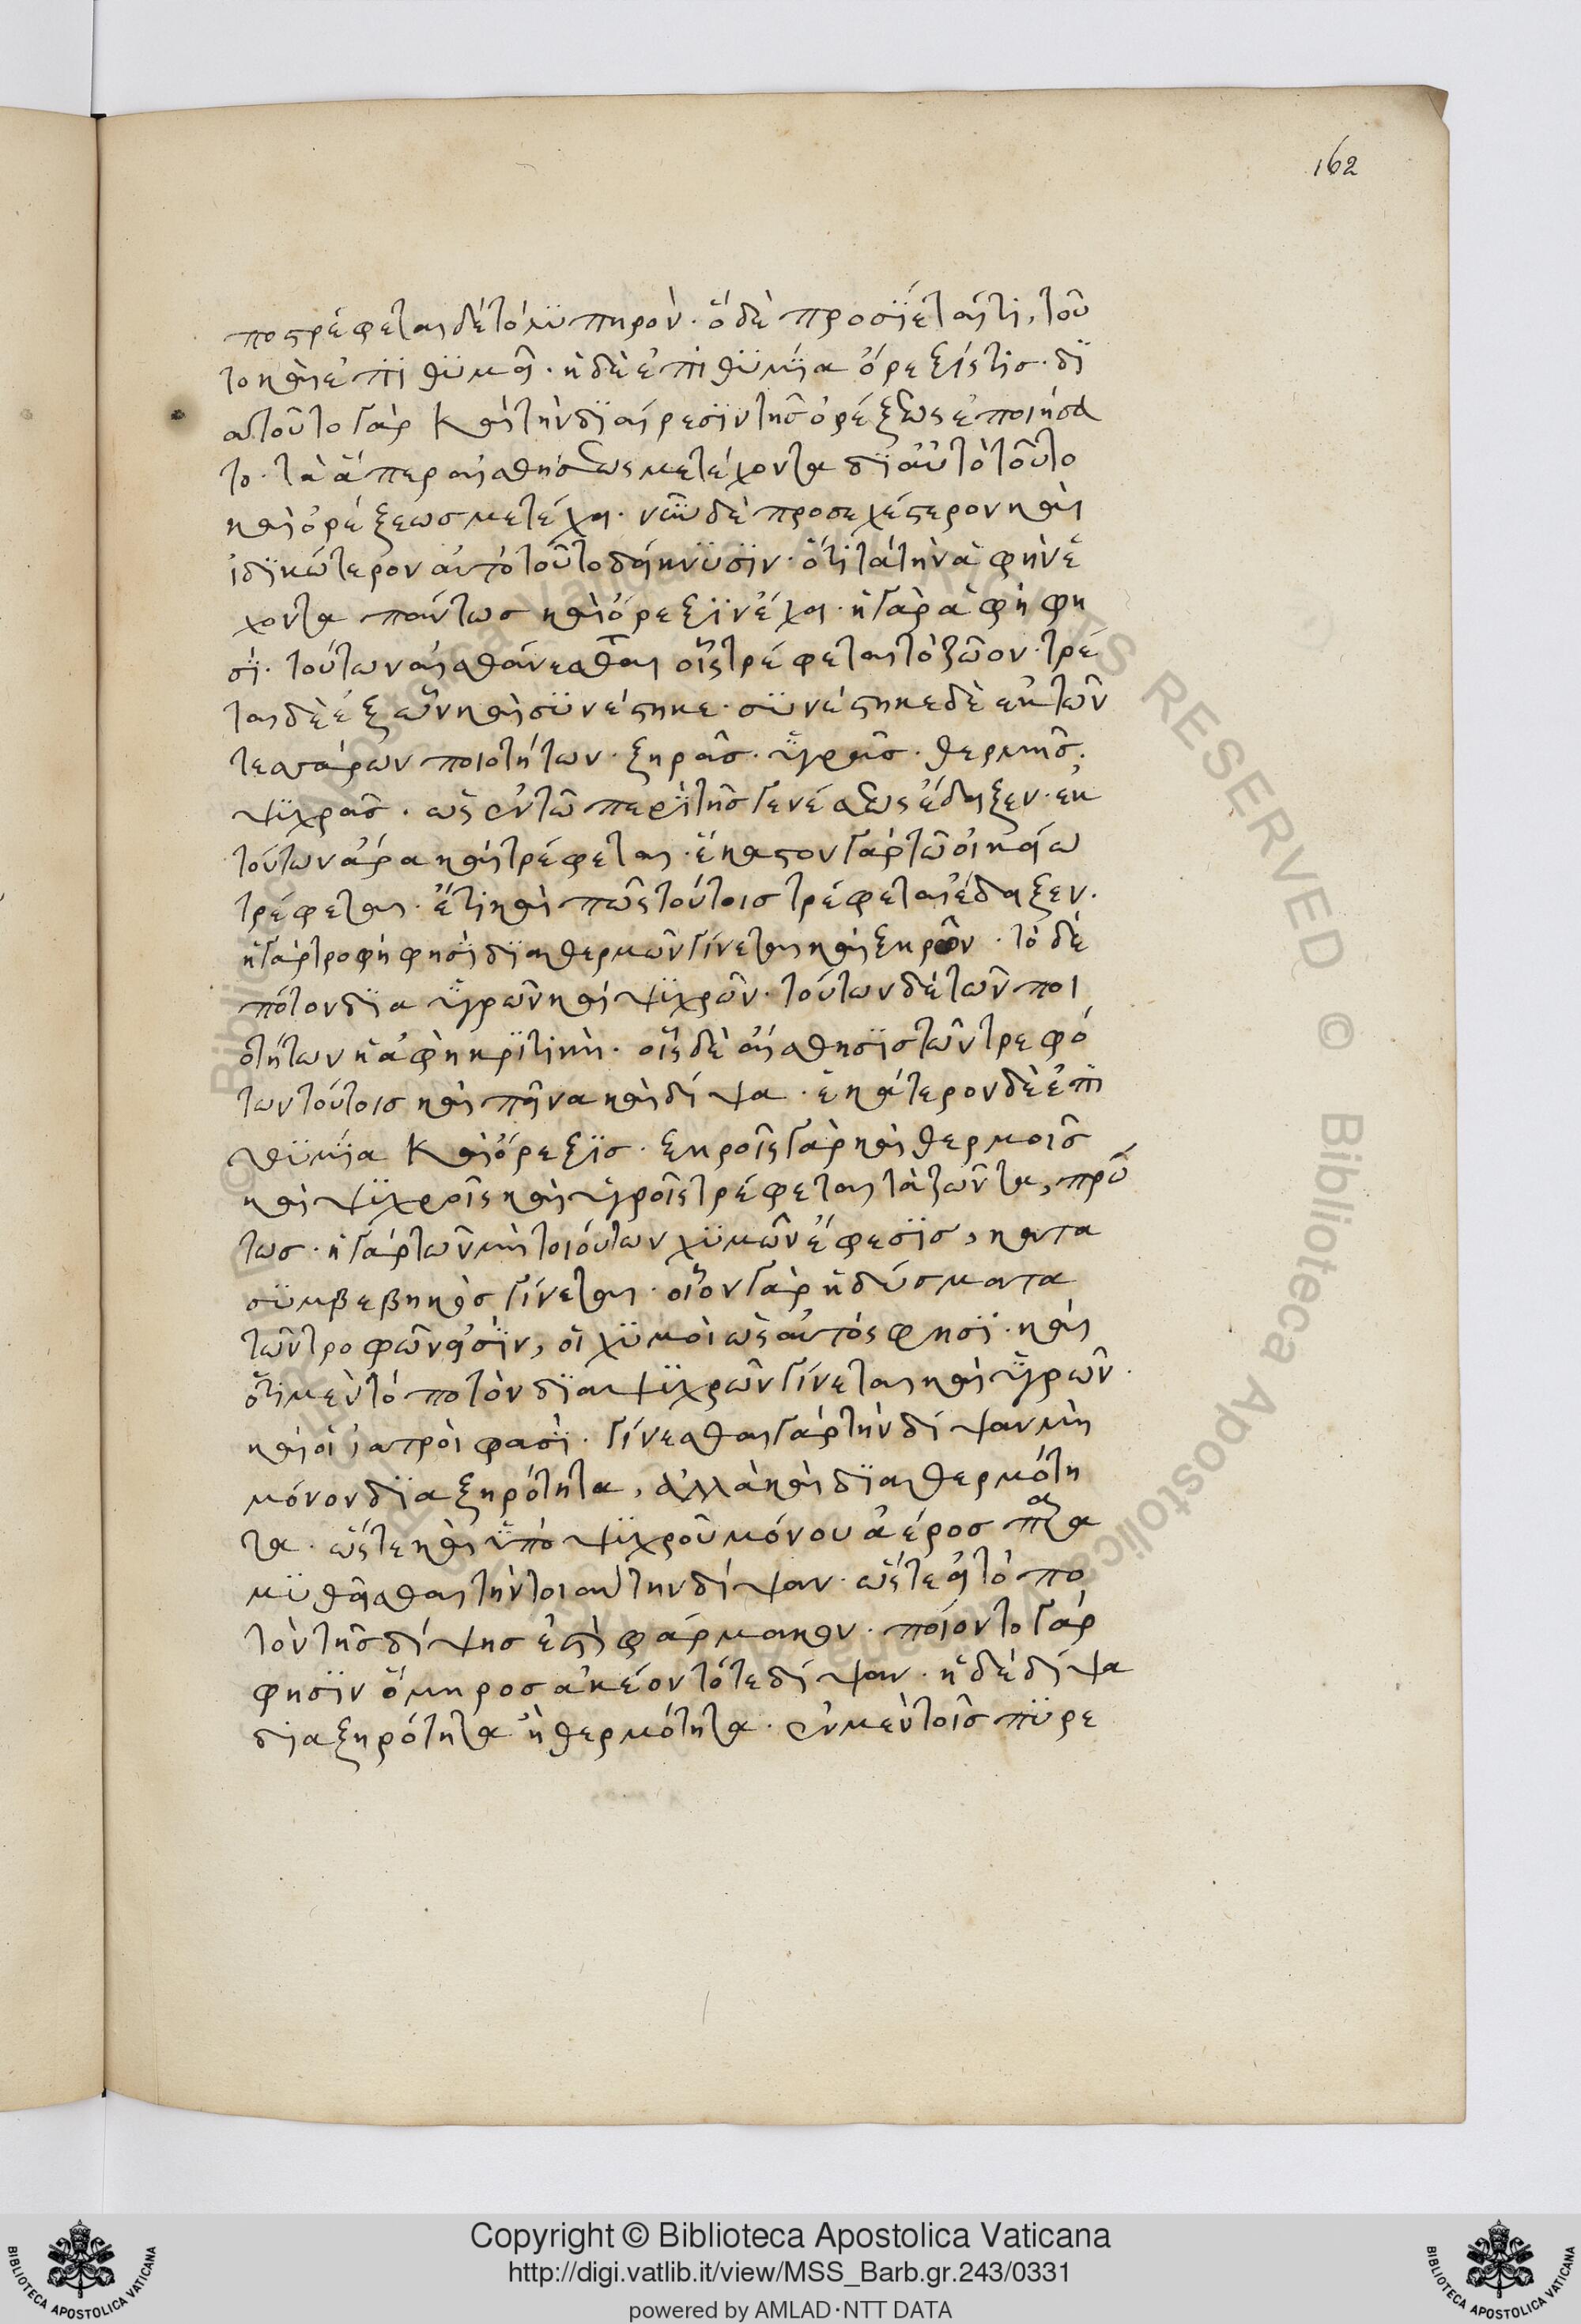 162
ποστρέφεται δὲ τὸ λυπηρόν· ὃ δὲ προσίεταί τι, τοῦ
το καὶ ἐπιθυμεῖ· ἡ δὲ ἐπιθυμία ὄρεξίς τις· δι
α τοῦτο γὰρ καὶ τὴν διαίρεσιν τῆς ὀρέξεως ἐποιήσα
το· τὰ ἅπερ αἰσθήσεως μετέχοντα δι' αὐτὸ τοῦτο
καὶ ὀρέξεως μετέχει· νῦν δὲ προσεχέστερον καὶ
ἰδικώτερον αὐτὸ τοῦτο δείκνυσιν· ὅτι τὰ τὴν ἁφὴν ἔ
χοντα πάντως καὶ ὄρεξιν ἔχει· ἡ γὰρ ἁφὴ φη
σι· τούτων αἰσθάνεσθαι οἷς τρέφεται τὸ ζῶον· τρέ
ται δὲ ἐξ ὧν καὶ συνέστηκε· συνέστηκε δὲ ἐκ τῶν
τεσσάρων ποιοτήτων· ξηρᾶς· ὑγρᾶς· θερμῆς·
ψυχρᾶς· ὡς ἐν τῶ περὶ τῆς γενέσεως ἔδειξεν· ἐκ
τούτων ἄρα καὶ τρέφεται· ἕκαστον γὰρ τῶ οἰκείω
τρέφεται· ἔτι καὶ πῶς τούτοις τρέφεται ἔδειξεν·
ἡ γὰρ τροφή φησι δια θερμῶν γίνεται καὶ ξηρῶν· τὸ δὲ
πότον δια ὑγρῶν καὶ ψυχρῶν· τούτων δὲ τῶν ποι
οτήτων ἡ ἁφὴ κριτική· οἷς δὲ αἴσθησις τῶν τρεφό
των τούτοις καὶ πεῖνα καὶ δίψα· ἑκάτερον δὲ ἐπι
θυμία καὶ ὄρεξις· ξηροῖς γὰρ καὶ θερμοῖς
καὶ ψυχροῖς καὶ ὑγροῖς τρέφεται τὰ ζῶντα, πρώ
τως· ἡ γὰρ τῶν μὴ τοιούτων χυμῶν ἔφεσις, κατα
συμβεβηκὸς γίνεται· οἷον γὰρ ἡδύσματα
τῶν τροφῶν εἰσιν, οἱ χυμοὶ ὡς αὐτός φησι· καὶ
ὅτι μὲν τὸ ποτὸν δια ψυχρῶν γίνεται καὶ ὑγρῶν·
καὶ οἱ ἰατροὶ φασι· γίνεσθαι γὰρ τὴν δίψαν μὴ
μόνον δια ξηρότητα, ἀλλὰ καὶ δια θερμότη
τα· ὥστε καὶ ὑπὸ ψυχροῦ μόνου ἀέρος πα
μυθεῖσθαι τὴν τοιαύτην δίψαν· ὥστε εἰ τὸ πο
τὸν τῆς δίψης ἐστὶ φάρμακον· ποίοντο γάρ
φησιν ὅμηρος ἀκέοντό τε δίψαν· ἡ δὲ δίψα
δια ξηρότητα ἢ θερμότητα· ἐν μὲν τοῖς πυρε
Copyright © Biblioteca Apostolica Vaticana
http://digi.vatlib.it/view/MSS_Barb.gr.243/0331
powered by AMLAD·NTT DATA